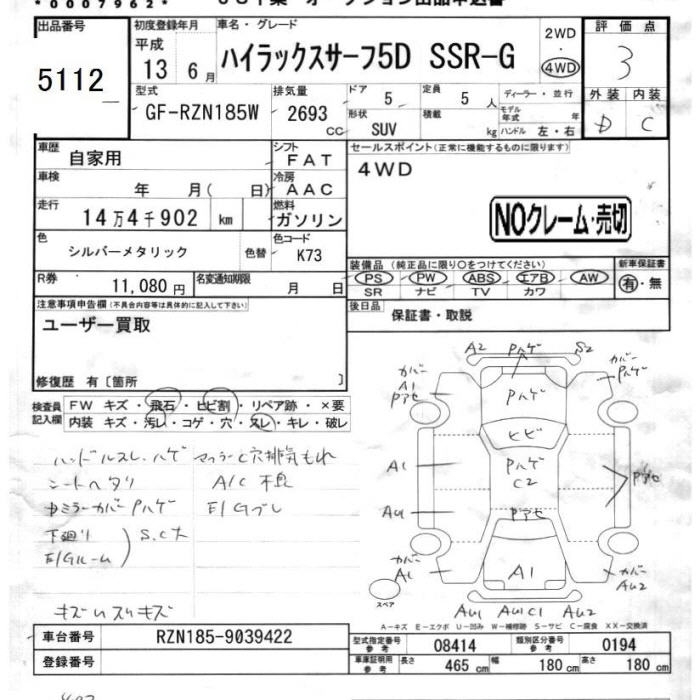 *0007962*
出品番号
5112
初度登録年月
平成
13 6月
車名・グレード
ハイラックスサーフ5D SSR-G
2WD
・
4WD
評価点
3
型式
GF-RZN185W
排気量
2693
cc
ドア
5
定員
5 人
ディーラー・並行
形状
SUV
積載
kg
モデル年式 年
ハンドル 左・右
外装 内装
D C
車歴
自家用
シフト
FAT
セールスポイント(正常に機能するものに限ります)
4WD
車検
年 月( 日)
冷房
AAC
走行
14万4千902 km
燃料
ガソリン
NOクレーム・売切
色
シルバーメタリック
色替
色コード
K73
装備品 (純正品に限り○をつけてください)
PS PW ABS エアB AW
SR ナビ TV カワ
新車保証書
有・無
R券
11,080円
名変通知期限
月 日
後日品
保証書・取説
注意事項申告欄(不具合内容等は具体的に記入して下さい)
ユーザー買取
修復歴 有〔箇所 〕
検査員
記入欄
FW キズ・飛石・ヒビ割・リペア跡・×要
内装 キズ・汚レ・コゲ・穴・スレ・キレ・破レ
ハンドルスレ、ハゲ
シートヘタリ
ミラーカバーPハゲ
下廻り
E/Gルーム
S、C大
キズ
スリキズ
マフラー穴排気もれ
A/C 不良
E/Gブレ
A2 Pハゲ S2
カバー
A1
Pアセ
カバー
Pハゲ
Pハゲ
ヒビ
Pハゲ
C2
Pアセ
A1
AU
Pアセ
カバー
A1
A1
カバー
AU2
スペア
AU1 AU1C1 AU2
A-キズ E-エクボ U-凹み W-補修跡 S-サビ C-腐食 XX-交換済
車台番号
RZN185-9039422
登録番号
型式指定番号
参考
08414
類別区分番号
参考
0194
車庫証明用
参考
長さ 465 cm 幅 180 cm 高さ 180 cm